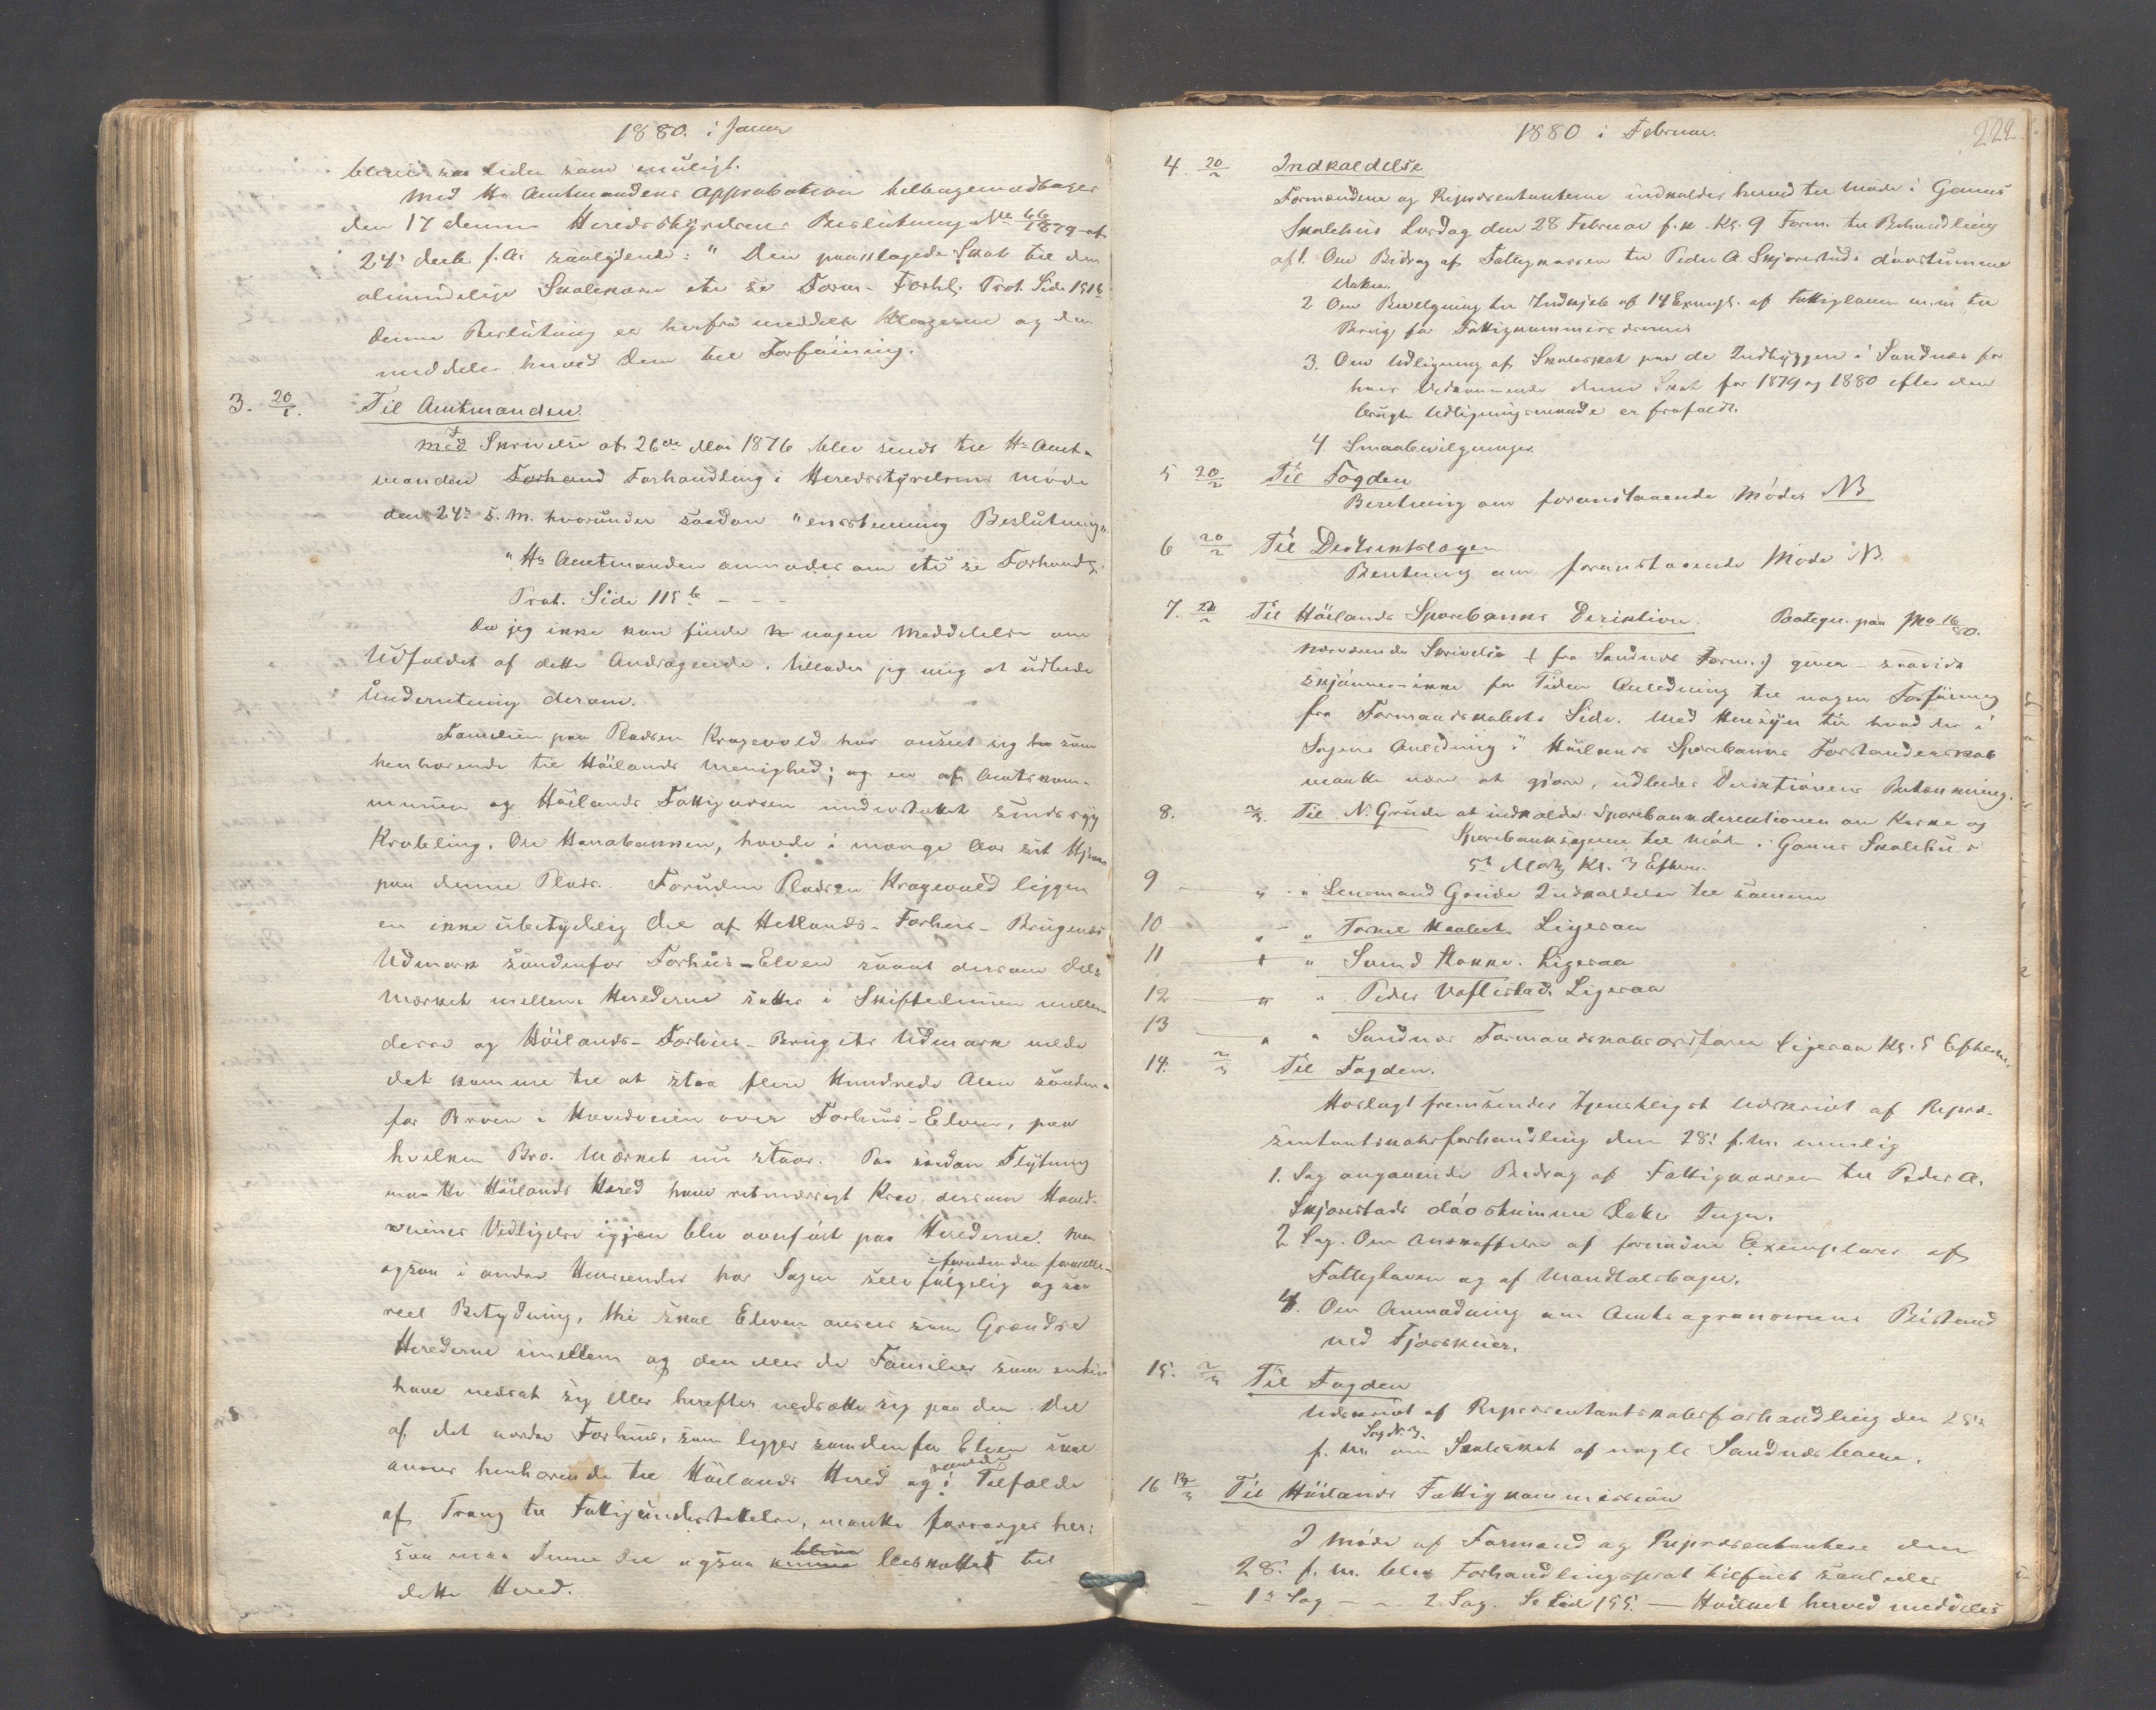 1880. i Januar
blevet saa liden som muligt.
Med Hr Amtmandens Approbation tilbagemodtoges
den 17 dennes Heredsstyrelsens Beslutning No 66/1879 af
24de Decbr f. A. saalydende: "Den paaklagede Skat til den
almindelige Skolekasse etc se Form. Forhl. Prot. Side 151b
Denne Beslutning er herfra meddelt Klagerne og den
meddeles herved Dem til Forføining.
3. 20/1. Til Amtmanden.
Med Skrivelse af 26de Mai 1876 blev sendt til Hr Amt-
manden Forhand Forhandling i Heredsstyrelsens møde
den 24de s. M. hvorunder saadan "enstemmig Beslutning"
"Hr Amtmanden anmodes om etc se Forhandl.
Prot. Side 115b - - -
Da jeg ikke kan finde n nogen Meddelelse om
Udfaldet af dette Andragende, tillader jeg mig at udbede
Underretning derom.
Familien paa Pladsen Kragevold har anseet sig ho som
henhørende til Høilands Menighed; og en af Amtskom-
munen og Høilands Fattigvæsen understøttet sindssyg
Krøbling, Ole Hanabakken, havde i mange Aar sit Hjem
paa denne Plads. Foruden Pladsen Kragevold ligger
en ikke ubetydelig Del af Hetlands-Forhus-Brugenes
Udmark søndenfor Forhus-Elven saaat dersom Dele-
Mærket mellem Herederne sattes i Skiftelinien mellem
disse og Høilands-Forhus-Brugets Udmark vilde
det komme til at staa flere Hundrede Alen sønden-
for Broen i Hovedveien over Forhus-Elven, paa
hvilken Bro Mærket nu staar. Paa saadan Flytning
maatte Høilands Hered have retmæssigt Krav, dersom Hoved-
veienes Vedligehold igjen blev overført paa Herederne. Men
ogsaa i andre Henseender har Sagen selvfølgelig foruden den formelle ogsaa
reel Betydning, thi skal Elven ansees som Grændse
Herederne imellem og den eller de Familier som enten
have nedsat sig eller herefter nedsætte sig paa den Del
af det nordre Forhus, som ligger søndenfor Elven skal
ansees henhørende til Høilands Hered og i Tilfælde
af Trang til Fattigunderstøttelse, maatte forsørges her:
saa maa denne Del ogsaa kunne blive beskattet til
dette Hered.
1880 i Februar.
222
4. 20/2 Indkaldelse
Formændene og Repræsentanterne indkaldes herved til Møde i Gannes
Skolehus Lørdag den 28 Februar f. k. Kl. 9 Form. til Behandling
af 1. Om Bidrag af Fattigkassen til Peder A. Skjørestads døvstumme
Datter.
2 Om Bevilgning til Indkjøb af 14 Exempl. af Fattigloven m.m. til
Brug for Fattigkommissionen
3. Om Udligning af Skoleskat paa de Indbyggere i Sandnæs for
hvis Vedkommende denne Skat for 1879 og 1880 efter den
brugte Udligningsmaade er frafaldt.
4. Smaabevilgninger.
5 20/2 Til Fogden
Beretning om foranstaaende Møder NB
6 20/2 Til Distriktslægen
Beretning om foranstaaende Møde NB.
7. 22/2 Til Høilands Sparebanks Direktion. Paategn. paa No 16/80.
Nærværende Skrivelse (fra Sandnæs Form.) giver - saavidt
skjønnes - ikke for Tiden Anledning til nogen Forføining
fra Formandskabets Side. Med Hensyn til hvad der i
Sagens Anledning i Høilands Sparebanks Forstanderskab
maatte være at gjøre, udbedes Direktionens Betænkning.
8. 2/3. Til N. Grude at indkalde Sparebankdirektionen om Kirke og
Sparebanksagerne til Møde i Gannes Skolehus
5te Marts Kl. 3 Efterm.
9 — " " Lensmand Grude Indkaldelse til samme
10 — " " Ligesaa
11 — " " Svend Stokke. Ligesaa
12 — " " Peder Ligesaa
13 — " " Sandnæs Formandskabsordfører ligesaa Kl. 5 Efterm.
14. 2/3 Til Fogden.
Hoslagt fremsendes tjenstligst Udskrivt af Repræ-
sentantskabsforhandling den 28. f. M. nemlig
1. Sag angaaende Bidrag af Fattigkassen til Peder A.
Skjørestads døvstumme Datter Inger.
2 Sag. Om Anskaffelse af fornødne Exemplarer af
Fattigloven og af Mandtalsbøger.
4. Om Anmodning om Amtsagronomens Bistand
ved Fjøskuer.
15. 2/3 Til Fogden
Udskrivt af Repræsentantskabsforhandling den 28de
f. M. Sag No 3. om Skoleskat af nogle Sandnæsboere.
16 13/3 Til Høilands Fattigkommission
I Møde af Formænd og Repræsentantere den
28. f. M. blev Forhandlingsprot. tilført saaledes
— 1ste Sag — — 2 Sag. Se Side 155. — Hvilket herved meddeles